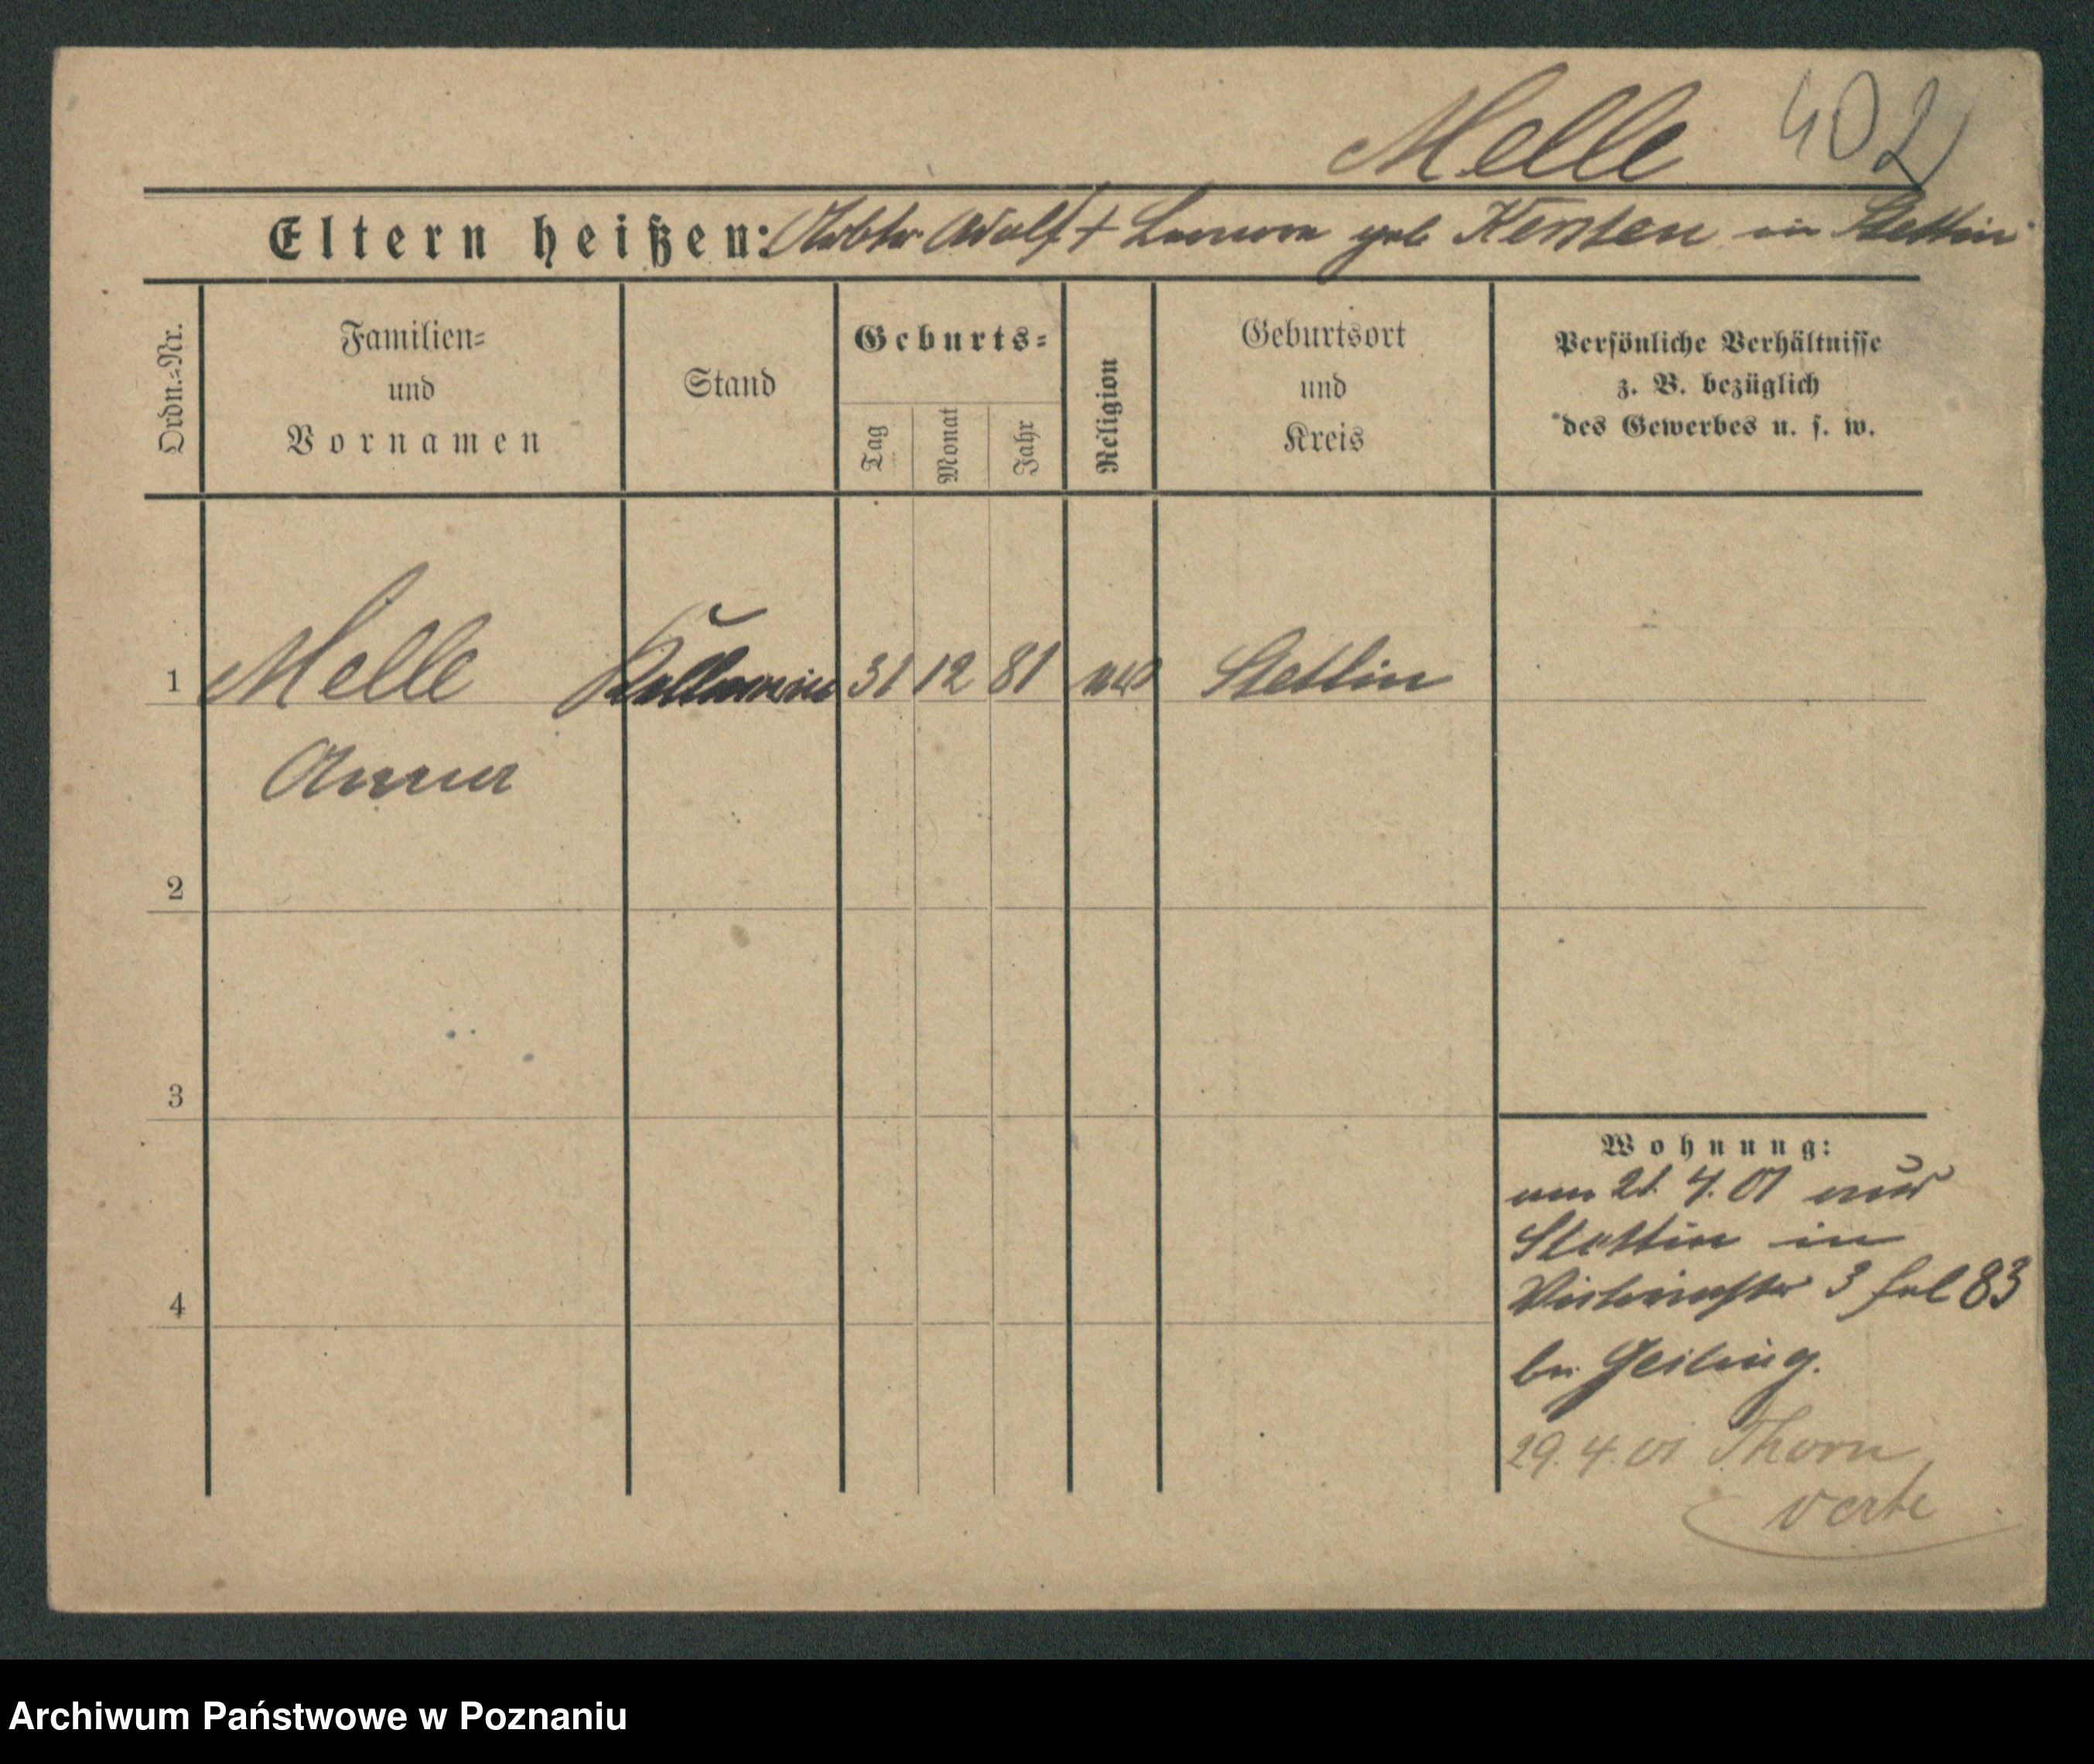 Melle 402
Eltern heißen: Arbtr Adolf + Laura geb Kersten in Stettin
Ordn.-Nr.
Familien-
und
Vornamen
Stand
Geburts-
Tag
Monat
Jahr
Religion
Geburtsort
und
Kreis
Persönliche Verhältnisse
z. B. bezüglich
des Gewerbes u. s. w.
1 Melle Kellnerin 31 12 81 Stettin
Anna
2
3
4
Wohnung:
am 21. 4. 01 aus
Stettin in
3 fol 83
bei Geiling.
29. 4. 01 Thorn
verte
Archiwum Państwowe w Poznaniu